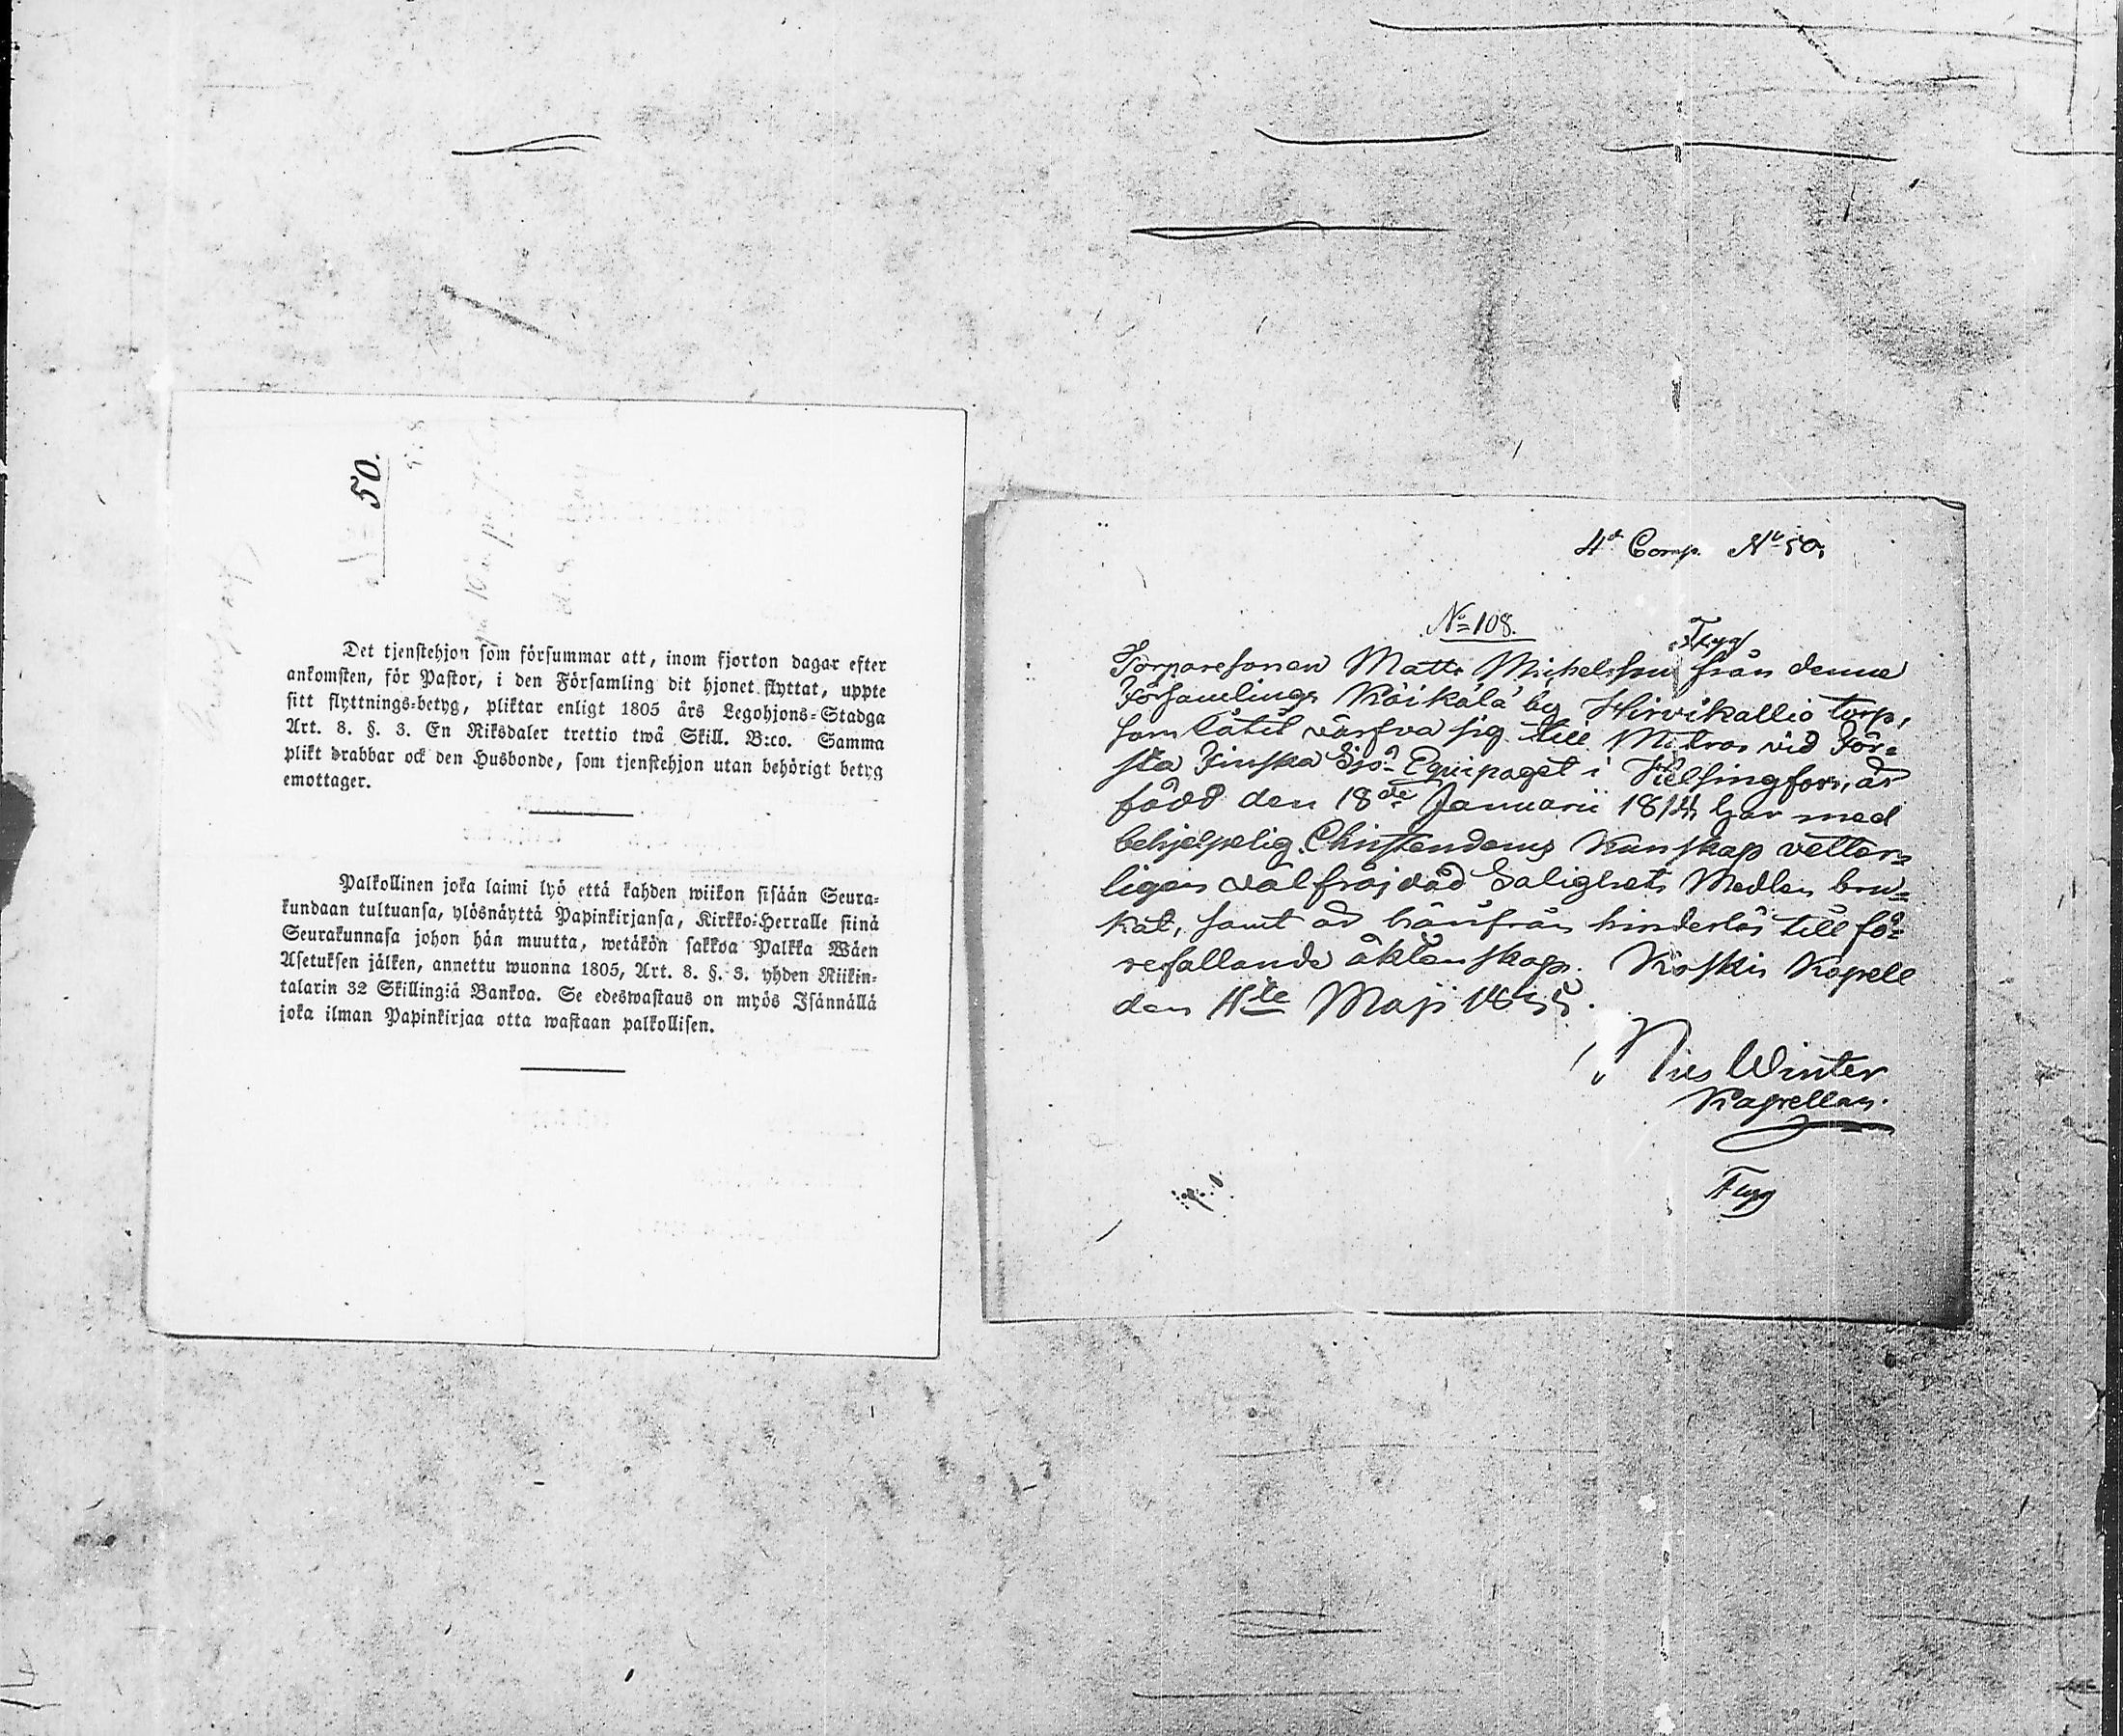 50.
Det tjenstehjon som försummar att, inom fjorton dagar efter
ankomsten, för Pastor, i den Församling dit hjonet flyttat, uppte
sitt flyttnings-betyg, pliktar enligt 1805 års Legohjons-Stadga
Art. 8. §. 3. En Riksdaler trettio twå Skill. B:co. Samma
plikt drabbar ock den Husbonde, som tjenstehjon utan behörigt betyg
emottager.
Palkollinen joka laimi lyö että kahden wiikon sisään Seura-
kundaan tultuansa, ylösnäyttä Papinkirjansa, Kirkko-Herralle siinä
Seurakunnasa johon hän muutta, wetäkön sakkoa Palkka Wäen
Asetuksen jälken, annettu wuonna 1805, Art. 8. §. 3. yhden Riikin-
talarin 32 Skillingiä Bankoa. Se edeswastaus on myös Isännällä
joka ilman Papinkirjaa otta wastaan palkollisen.
4de Comp. No 50.
No 108.
Flygt
Torparesonen Matts Michelsson från denne
Församlings Käikälä by Hirvikallio torp,
som låtit värfva sig till Matros vid För=
sta Finska Sjö Equipaget i Helsingfors, är
född den 18de Januarii 1814, har med
behjelpelig Christendoms Kunskap vetter=
ligen välfräjdad Salighets Medlen bru=
kat, samt är härifrån hinderlös till fö=
refallande äktenskap. Koskis Kapell
den 11te Maji 1835.
Nils Winter
Kapellan.